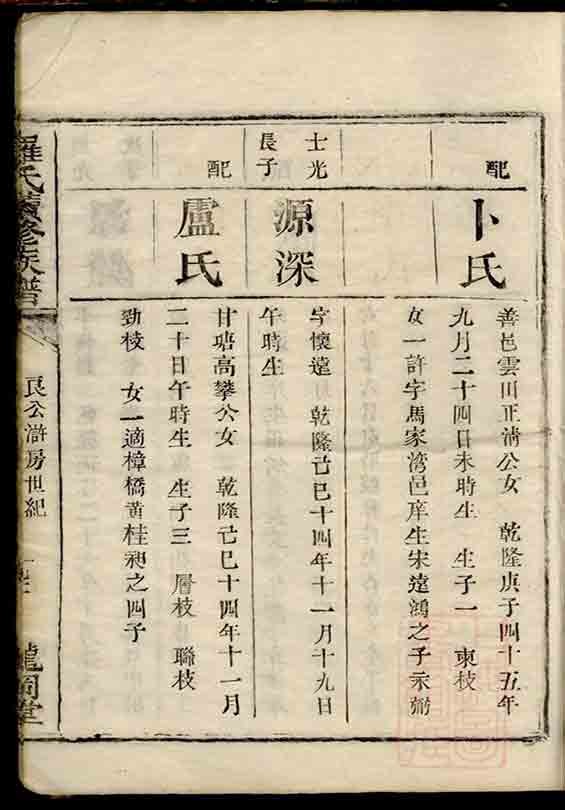 配
卜氏
善邑雲田正清公女 乾隆庚子四十五年
九月二十四日未時生 生子一 東枝
女一許字馬家湾邑庠生宋遠鴻之子承弼
士光
長子
源深
字懷遠 乾隆己巳十四年十一月十九日
午時生
配
盧氏
甘塘高攀公女 乾隆己巳十四年十一月
二十日午時生 生子三 層枝 聯枝
勁枝 女一適樟橋黃桂昶之四子
羅氏續修族譜
良公滸房世紀
龍岡堂